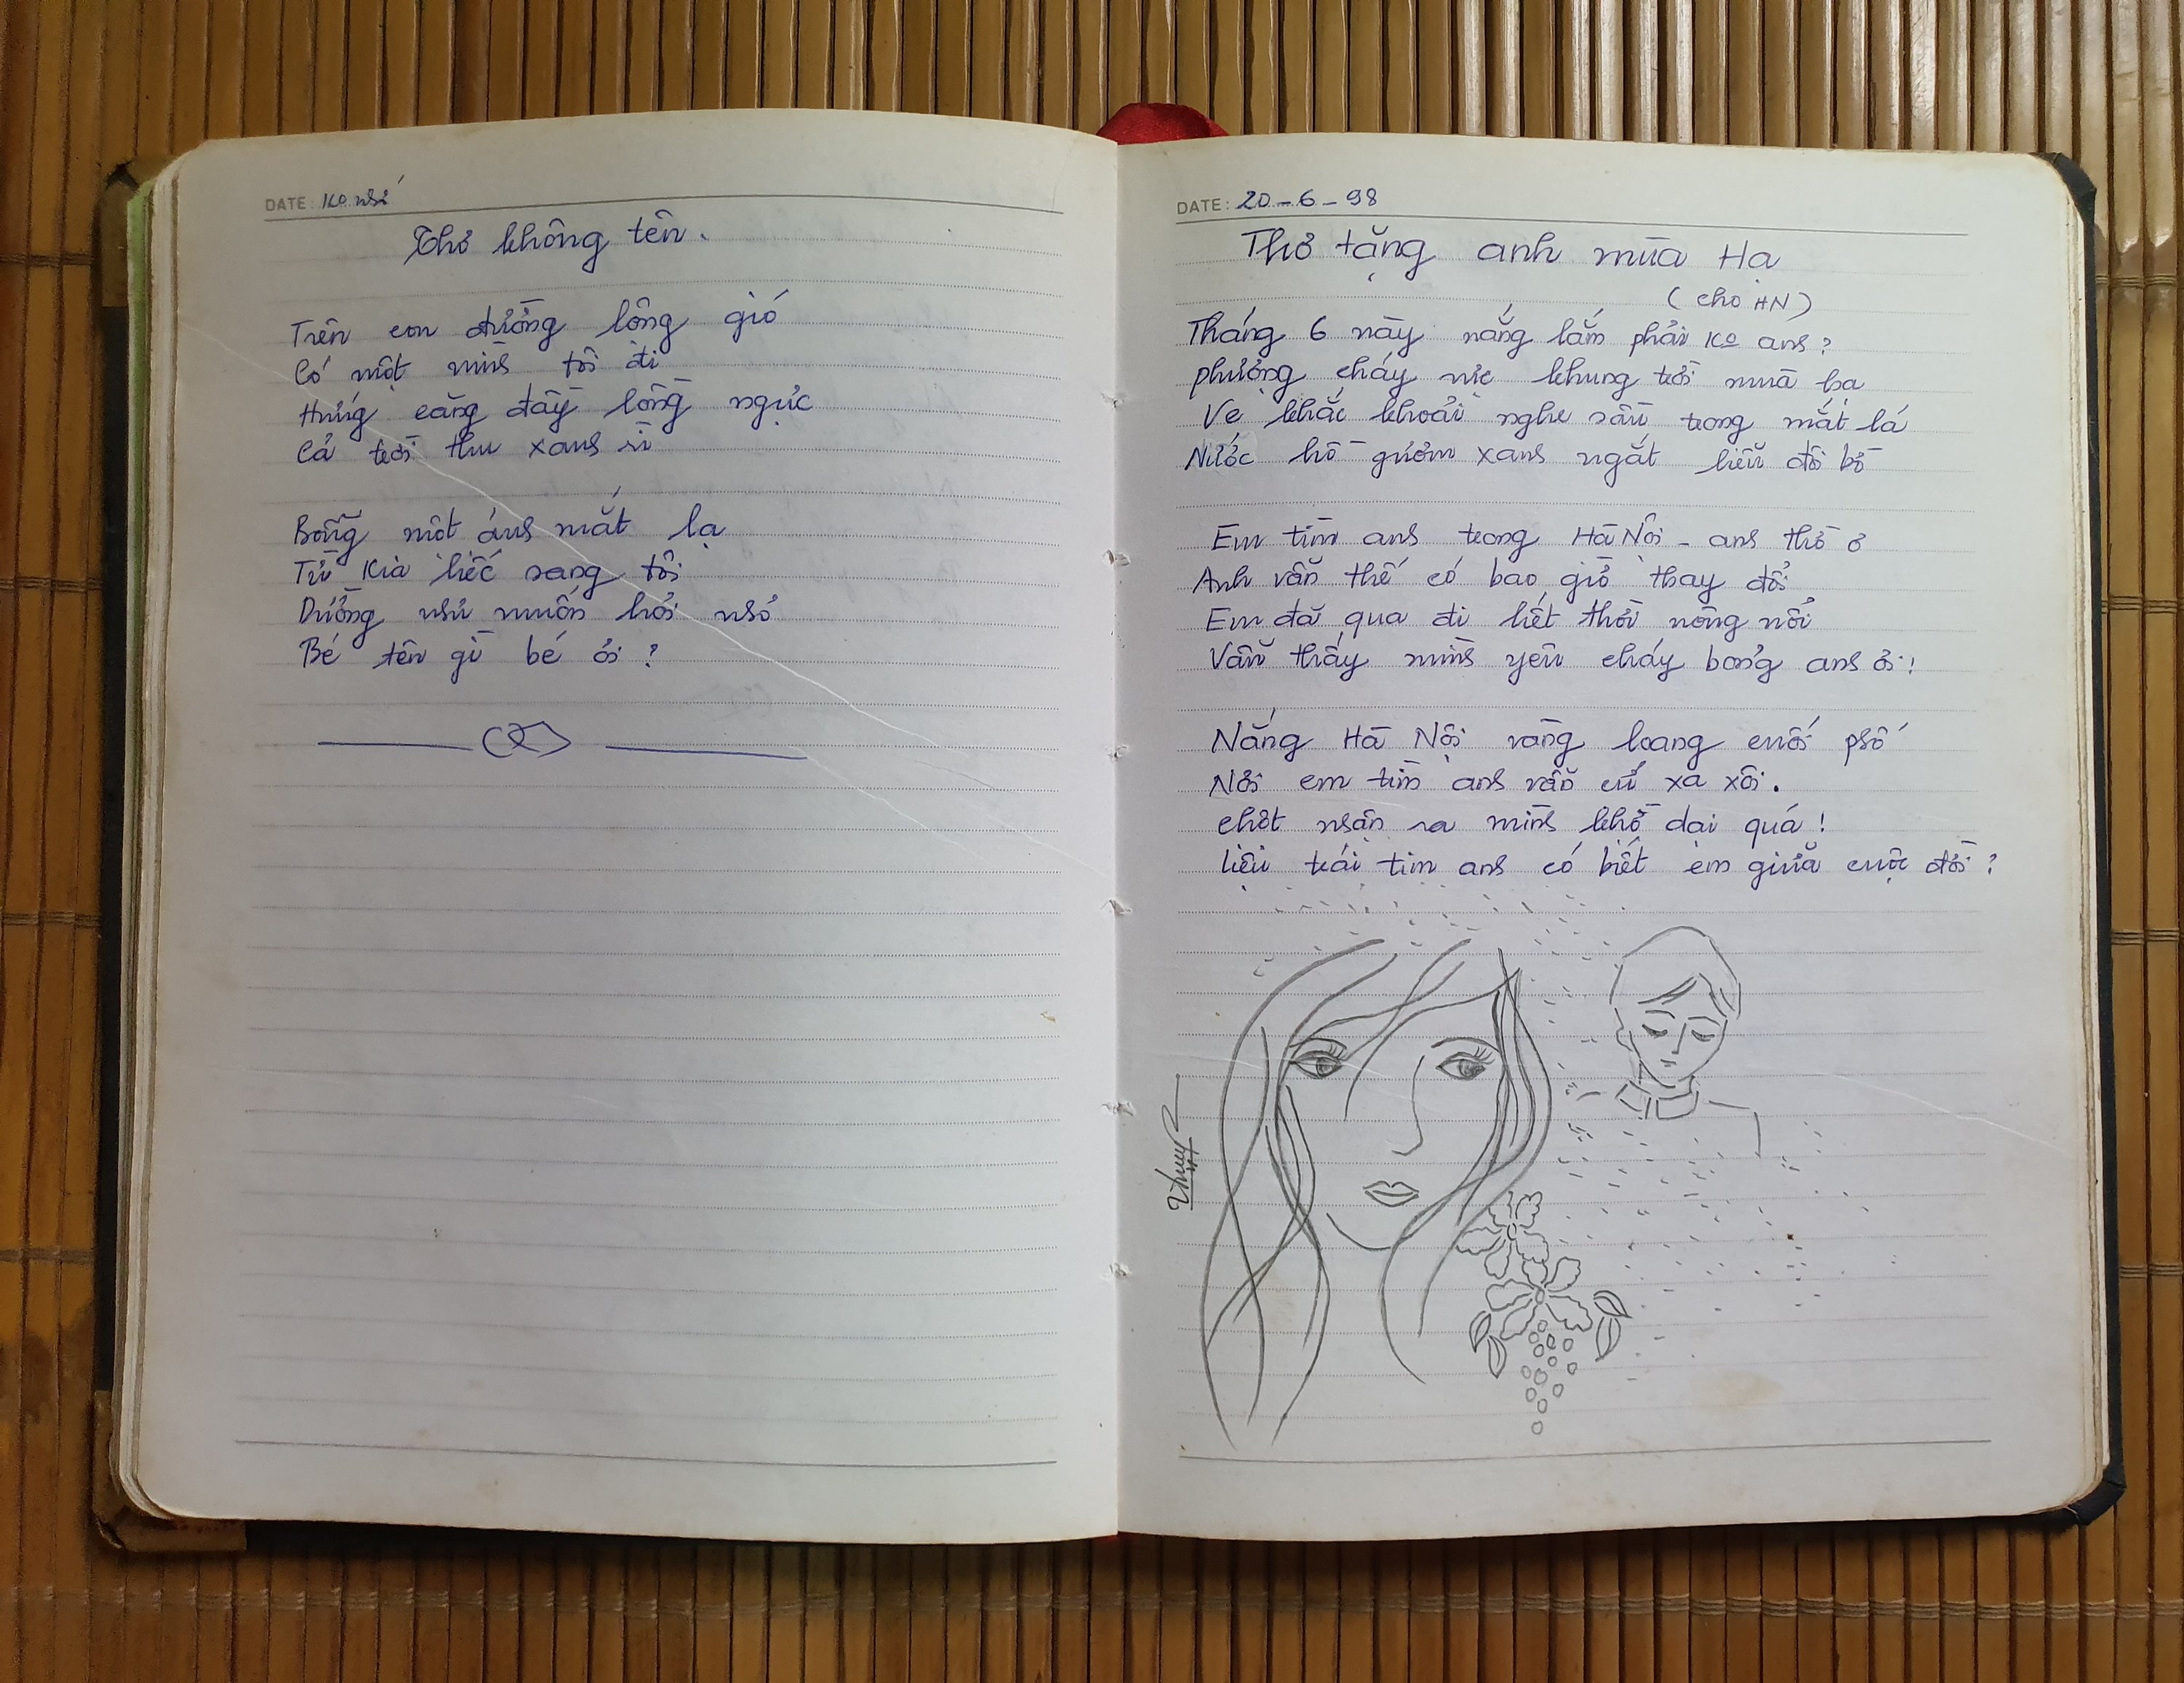 DATE: Ko nhớ
Thơ không tên.
Trên con đường lồng gió
Có một mình tôi đi
Hứng căng đầy lồng ngực
Cả trời thu xanh rì
Bỗng một ánh mắt lạ
Từ kia liếc sang tôi
Dường như muốn hỏi nhỏ
Bé tên gì bé ơi ?
DATE: 20-6-98
Thơ tặng anh mùa Hạ
(cho HN)
Tháng 6 này nắng lắm phải Ko anh?
phượng cháy rực khung trời mùa hạ
Ve khắc khoải nghe sầu trong mắt lá
Nước hồ gươm xanh ngắt liễu đôi bờ
Em tìm anh trong Hà Nội - anh thờ ơ
Anh vẫn thế có bao giờ thay đổi
Em đã qua đi hết thời nông nổi
Vẫn thấy mình yêu cháy bỏng anh ơi!
Nắng Hà Nội vàng loang cuối phố
Nơi em tìm anh vẫn cứ xa xôi.
chợt nhận ra mình khờ dại quá!
liệu trái tim anh có biết em giữa cuộc đời?